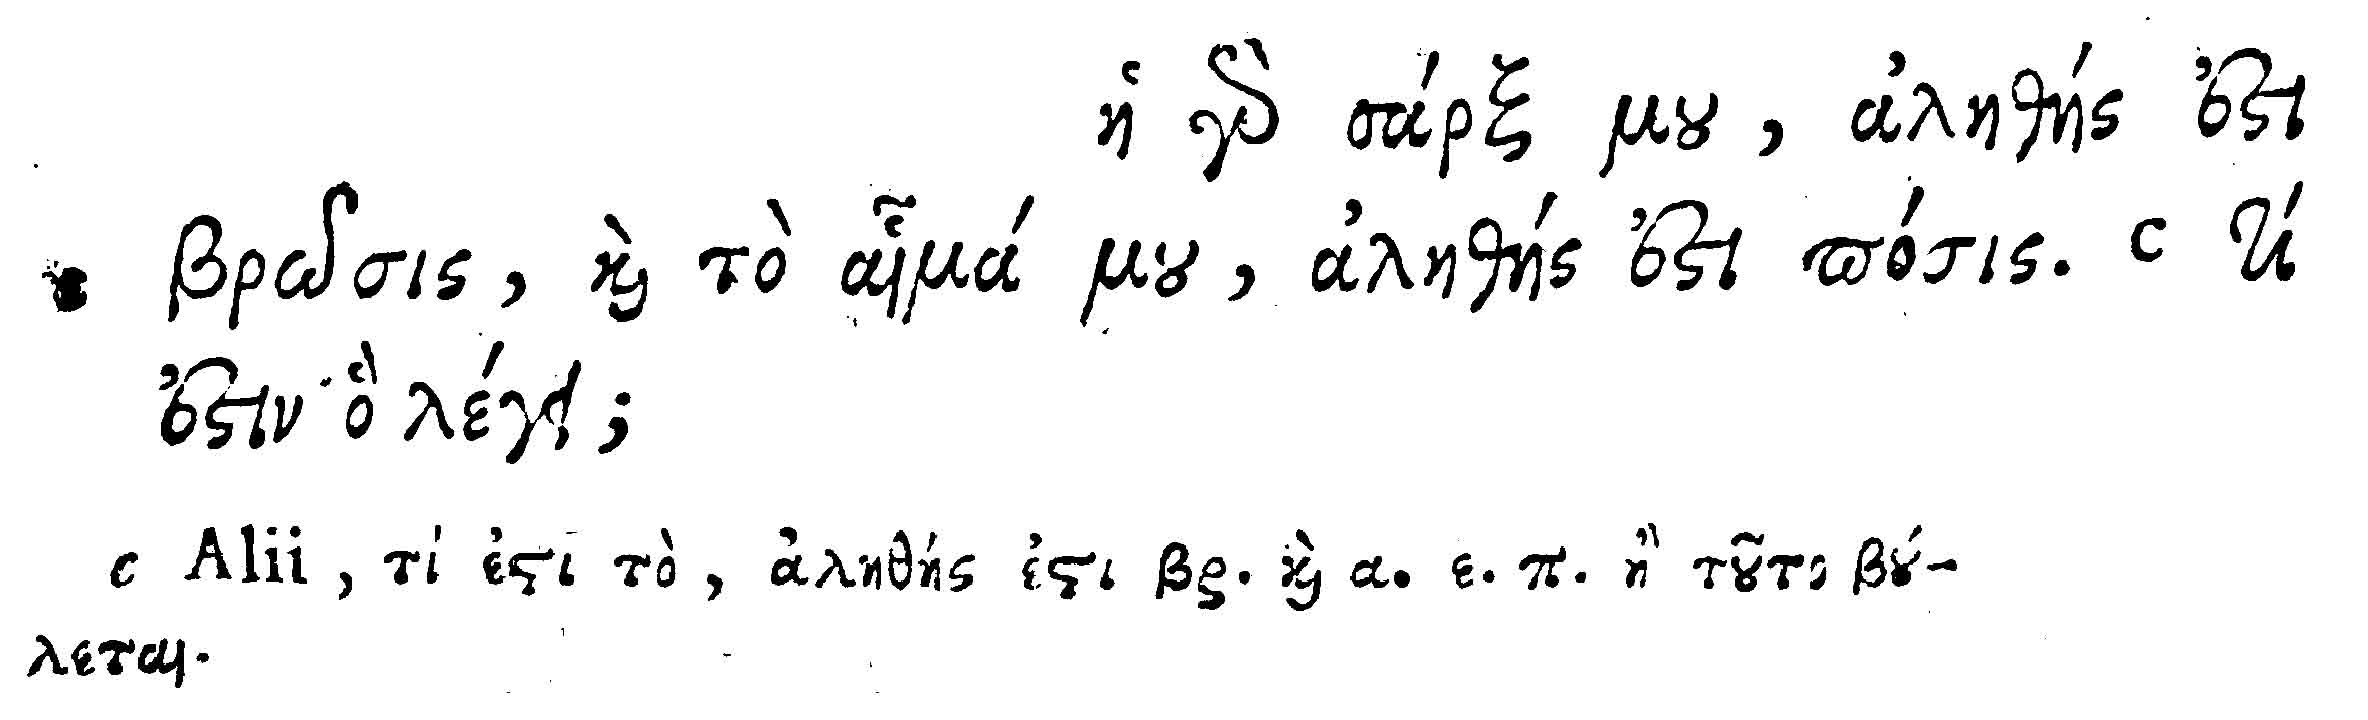 ἡ γὰρ σάρξ μου, ἀληθής ἐστι
βρῶσις, καὶ τὸ αἷμά μου, ἀληθής ἐστι πόσις. c τί
ἐστιν ὃ λέγει;
c Alii, τί ἐστι τὸ, ἀληθής ἐστι βρ. καὶ α. ε. π. ἢ τοῦτο βού-
λεται.